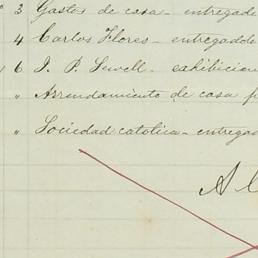 3 Gastos de casa - entregado
4 Carlos Flores - entregadole
6 J. P. Sewell - exhibicion
" Arrendamiento de casa p
" Sociedad catolica - entregad
A C